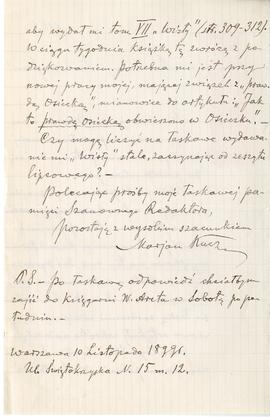 aby wydał mi tom VII „Wisły” (str. 309-312).
W ciągu tygodnia książkę tę zwrócę z po-
dziękowaniem. Potrzebna mi jest przy
nowej pracy mojej, mającej związek z „praw-
dą Osiecką”, mianowicie do artykułu „Jak
to prawdę osiecką obwieszono w Osiecku.”—
Czy mogę liczyć na łaskawe wydawa-
nie mi „Wisły” stale, zaczynając od zeszytu
lipcowego?—
Polecając prośby moje łaskawej pa-
mięci Szanownego Redaktora,
pozostaję z wysokim szacunkiem
Marjan
P.S.— Po łaskawą odpowiedź chciałbym
zajść do księgarni W. Areta w Sobotę po po-
łudniu.—
Warszawa 10 Listopada 1899 r.
Ul. Świętokrzyska N. 15 m. 12.